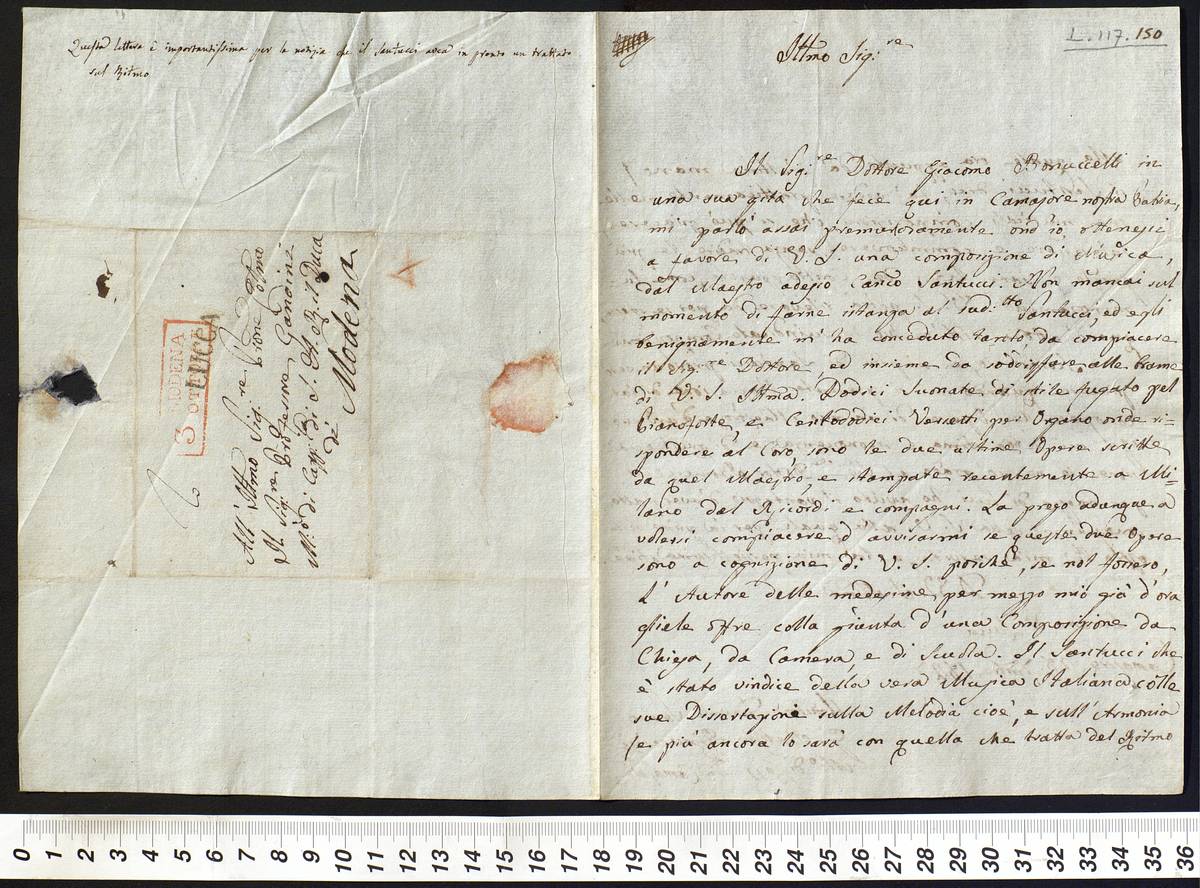 Questa lettera è importantissima per la notizia che il Santucci avea in pronto un trattato
sul Ritmo
All' Illmo Sig.re Prone Colmo
Il Sig.re Professore Gandini
M.ro di Capp. di S. A. R. il Duca
di
Modena
MODENA
3 OTT
L. 117. 150
Illmo Sig.re
Il Sig.re Dottore Giacomo in
una sua gita che fece qui in Camajore nostra Patria,
mi parlò assai premurosamente ond' io ottenessi
a favore di V. S. una composizione di Musica,
dal Maestro adesso Can.co Santucci. Non mancai sul
momento di farne istanza al sud.tto Santucci, ed egli
benignamente m' ha conceduto tanto, da compiacere
il Sig.re Dottore, ed insieme da soddisfare alle brame
di V. S. Illma. Dodici Suonate di stile fugato pel
Pianoforte, e Centododici Versetti per Organo onde ri-
spondere al Coro, sono le due ultime Opere scritte
da quel Maestro, e stampate recentemente a Mi-
lano dal Ricordi e compagni. La prego adunque a
volersi compiacere d' avvisarmi se queste due Opere
sono a cognizione di V. S. poichè, se nol fossero,
L' Autore delle medesime per mezzo mio già d' ora
gliele offre colla giunta d' una Composizione da
Chiesa, da Camera, e di Scuola. Il Santucci che
è stato vindice della vera Musica Italiana colle
sue Dissertazioni sulla Melodia cioè, e sull' Armonia
(e più ancora lo sarà con quella che tratta del Ritmo
0 1 2 3 4 5 6 7 8 9 10 11 12 13 14 15 16 17 18 19 20 21 22 23 24 25 26 27 28 29 30 31 32 33 34 35 36